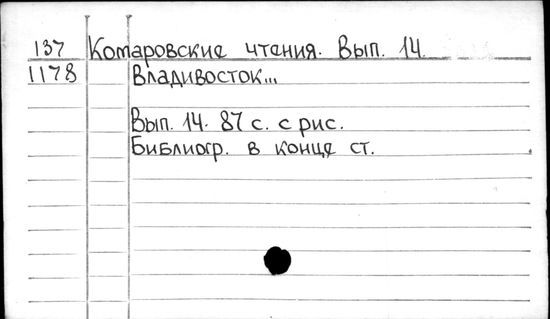 137 Комаровские чтения. Вып. 14.
1178 Владивосток...
Вып. 14. 87 с. с рис.
Библиогр. в конце ст.